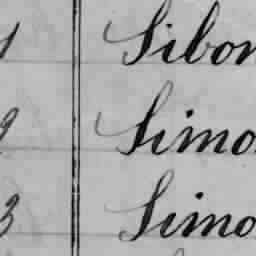 1 Sibon
9 Simo
3 Simo